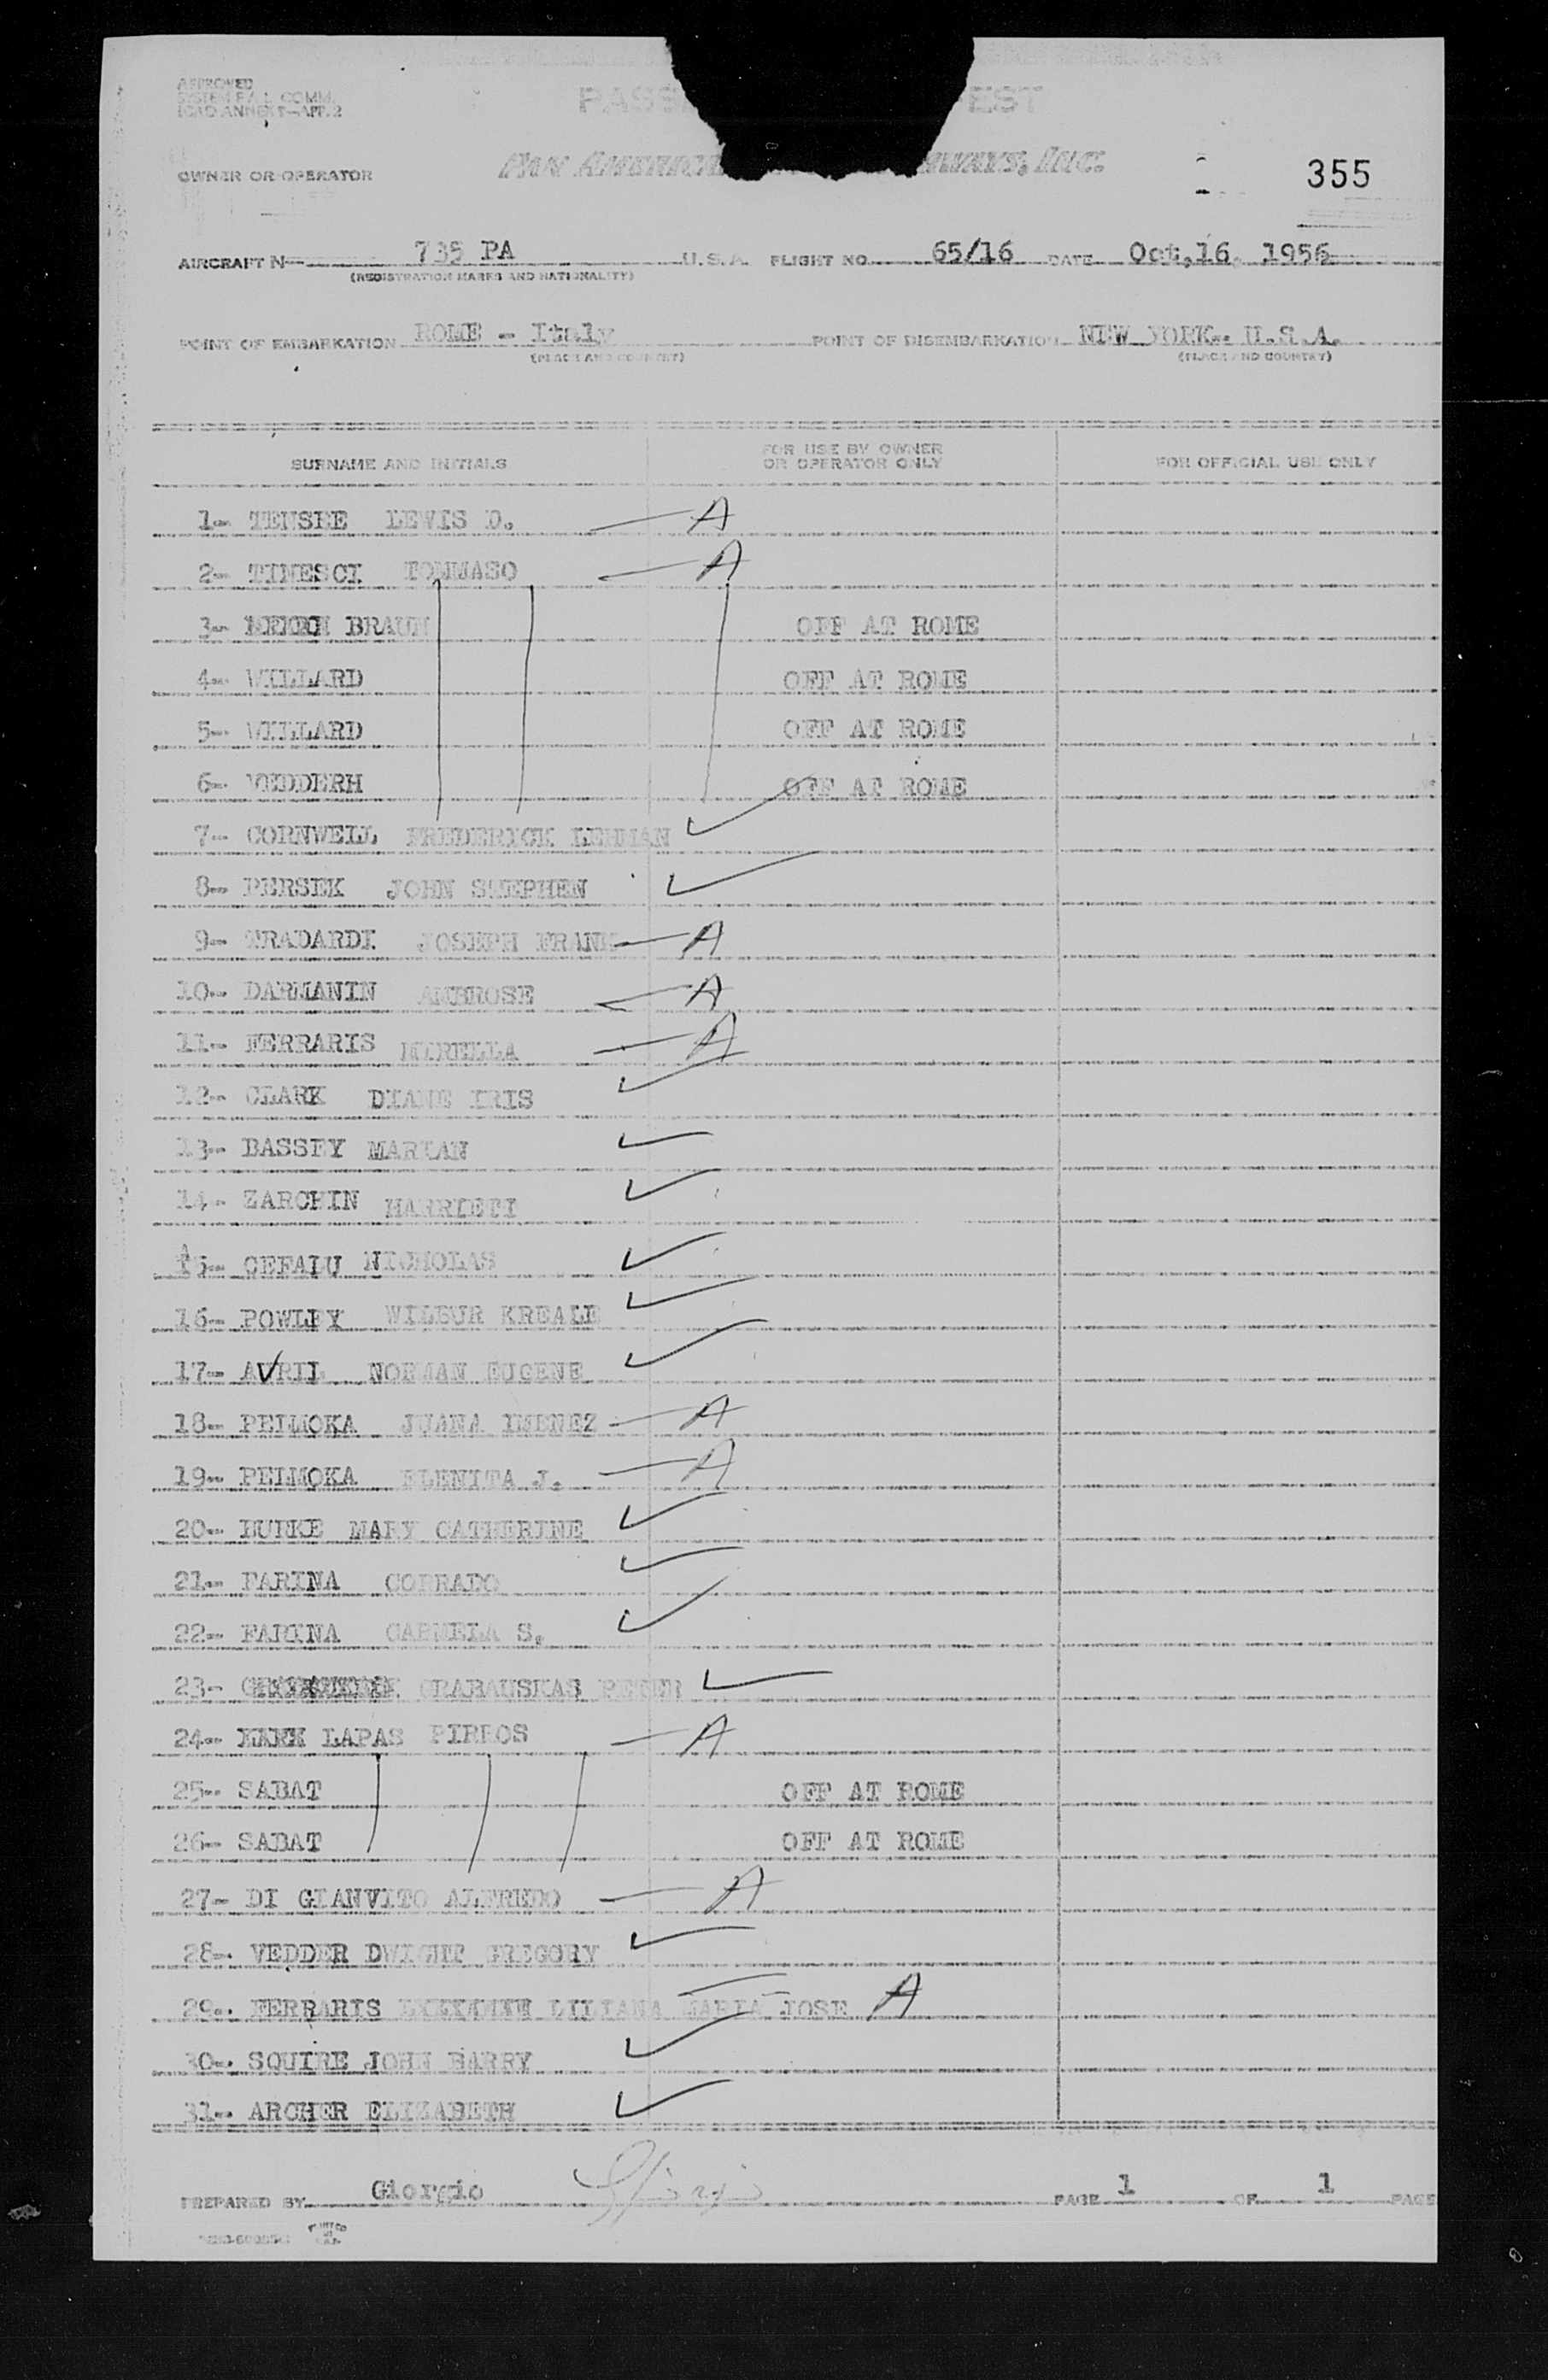 APPROVED
SYSTEM F.A.L. COMM.
ICAO ANNEX 9-APP. 2
PASS EST
PAN AMERICAN WAYS, INC.
OWNER OR OPERATOR
355
AIRCRAFT N 735 PA U.S.A. FLIGHT NO. 65/16 DATE Oct,16, 1956
(REGISTRATION MARKS AND NATIONALITY)
POINT OF EMBARKATION ROME - Italy POINT OF DISEMBARKATION NEW YORK- U.S.A.
(PLACE AND COUNTRY) (PLACE AND COUNTRY)
SURNAME AND INITIALS FOR USE BY OWNER OR OPERATOR ONLY FOR OFFICIAL USE ONLY
1- LEWIS D. — A
2- TINESCI TOMMASO — A
3- BRAUN OFF AT ROME
4- WILLARD OFF AT ROME
5- WILLARD OFF AT ROME
6- VEDDERH OFF AT ROME
7- CORNWELL FREDERICK LEHMAN ✓
8- PERSEK JOHN STEPHEN ✓
9- TRADARDI JOSEPH FRANK — A
10- DARMANIN AMBROSE — A
11- FERRARIS MIRELLA — A
12- CLARK DIANE IRIS ✓
13- BASSEY MARIAN ✓
14- ZARCHIN HARRIETT ✓
15- CEFALU NICHOLAS ✓
16- POWLEY WILBUR ✓
17- AVRIL NORMAN EUGENE ✓
18- PEIMOKA JUANA IMENEZ — A
19- PEIMOKA ELENITA J. — A
20- BURKE MARY CATHERINE ✓
21- FARINA CORRADO ✓
22- FARINA CARMELA S. ✓
23- GRABAUSKAS PETER ✓
24- LAPAS PIRROS — A
25- SABAT OFF AT ROME
26- SABAT OFF AT ROME
27- DI GIANVITO ALFREDO — A
28- VEDDER DWIGHT GREGORY ✓
29- FERRARIS LILIANA MARIA JOSE A
30- SQUIRE JOHN HARRY ✓
31- ARCHER ELIZABETH ✓
PREPARED BY Giorgio PAGE 1 OF 1 PAGE